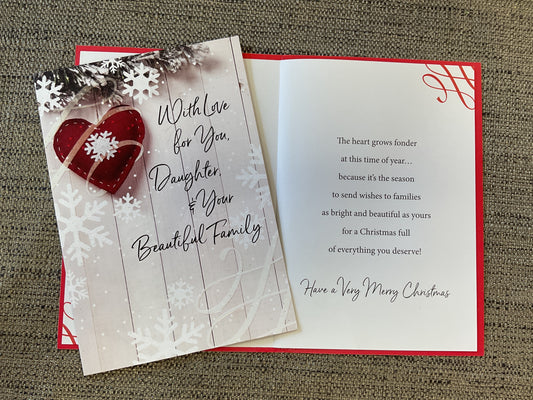 With Love
for You,
Daughter,
& Your
Beautiful Family
The heart grows fonder
at this time of year...
because it's the season
to send wishes to families
as bright and beautiful as yours
for a Christmas full
of everything you deserve!
Have a Very Merry Christmas